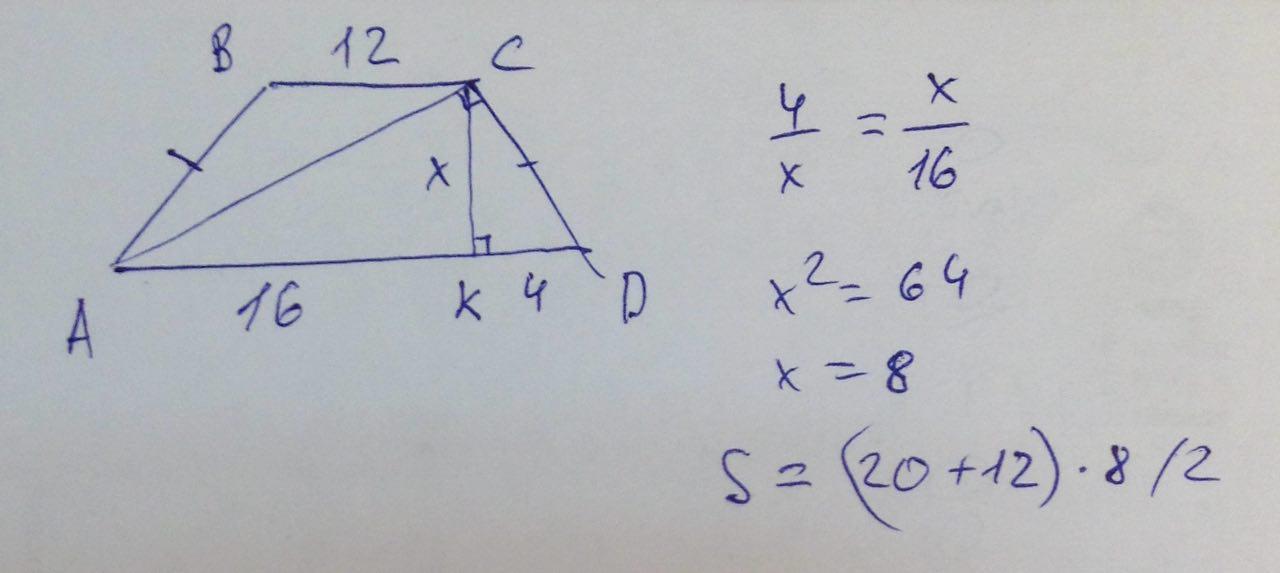 B 12 C
x
A 16 K 4 D
4/x = x/16
x² = 64
x = 8
S = (20 + 12) · 8 / 2